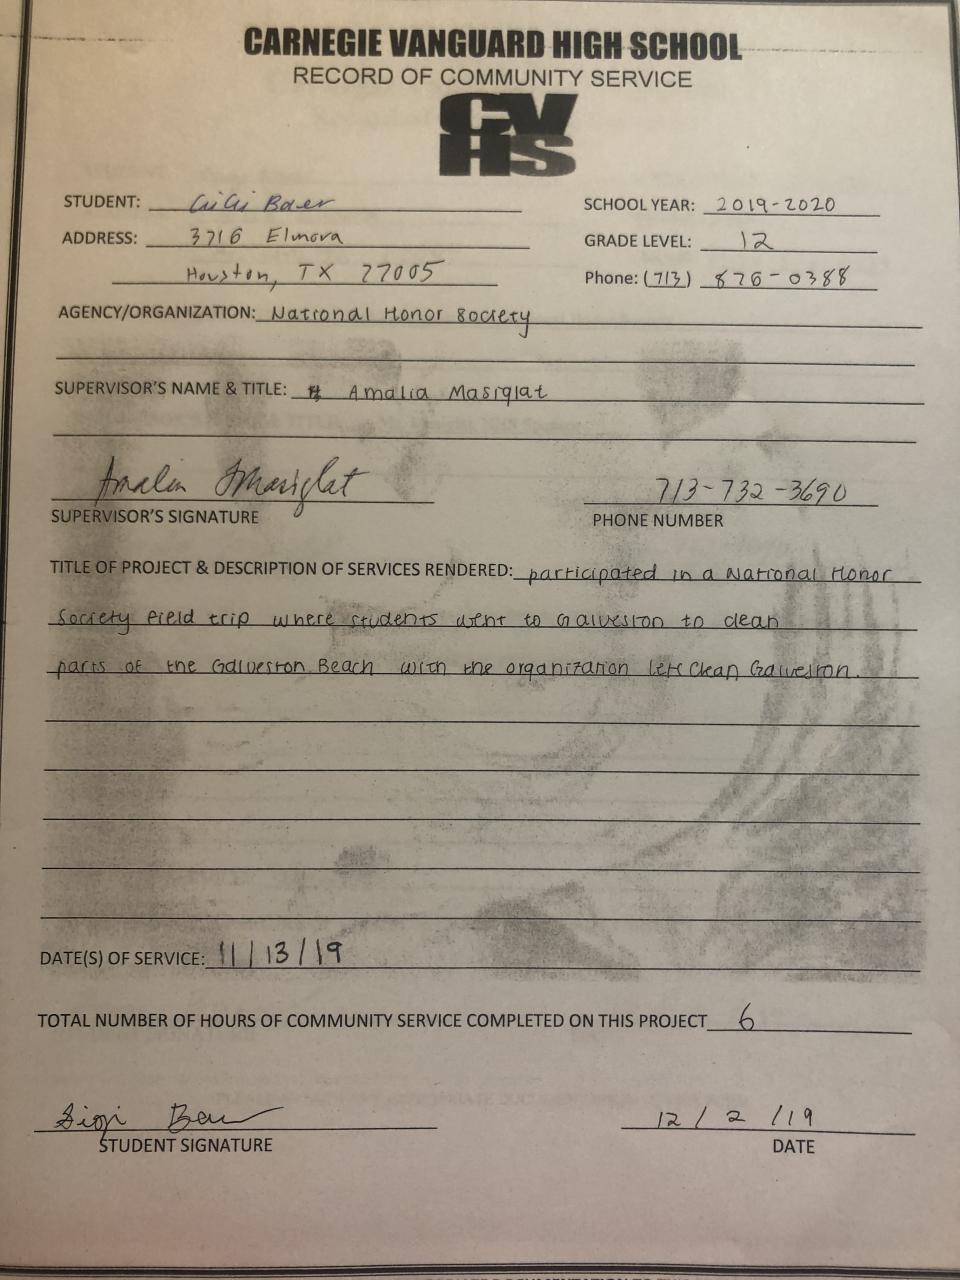 CARNEGIE VANGUARD HIGH SCHOOL
RECORD OF COMMUNITY SERVICE
CV
HS
STUDENT: GiGi Baer SCHOOL YEAR: 2019-2020
ADDRESS: 3716 Elmora GRADE LEVEL: 12
Houston, TX 77005 Phone: (713) 876-0388
AGENCY/ORGANIZATION: National Honor Society
SUPERVISOR'S NAME & TITLE: Amalia Masiglat
Amalia Masiglat 713-732-3690
SUPERVISOR'S SIGNATURE PHONE NUMBER
TITLE OF PROJECT & DESCRIPTION OF SERVICES RENDERED: participated in a National Honor
Society field trip where students went to Galveston to clean
parts of the Galveston Beach with the organization Lets Clean Galveston.
DATE(S) OF SERVICE: 11/13/19
TOTAL NUMBER OF HOURS OF COMMUNITY SERVICE COMPLETED ON THIS PROJECT 6
Gigi Baer 12/2/19
STUDENT SIGNATURE DATE